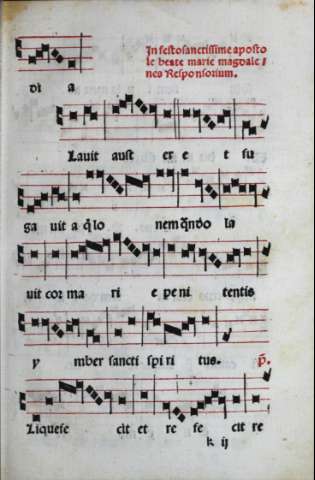 di a
In festo sanctissime aposto
le beate marie magdale /
nes Responsorium.
Lauit aust er e t su
ga uit a q̃lo nem qn̄do la
uit cor ma ri e pe ni tentis
y mber sancti spi ri tus. p̄.
Liquesc cit et re se cit re
k ij